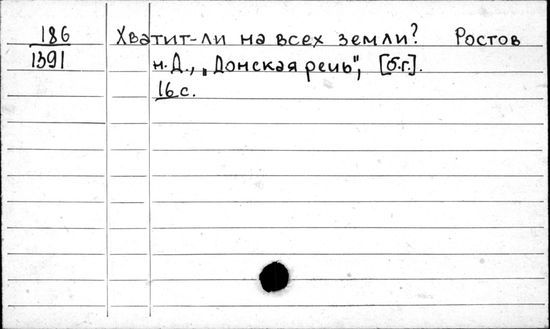 186 Хватит-ли на всех земли? Ростов
1391 н.Д., "Донская речь", [б.г].
16 с.